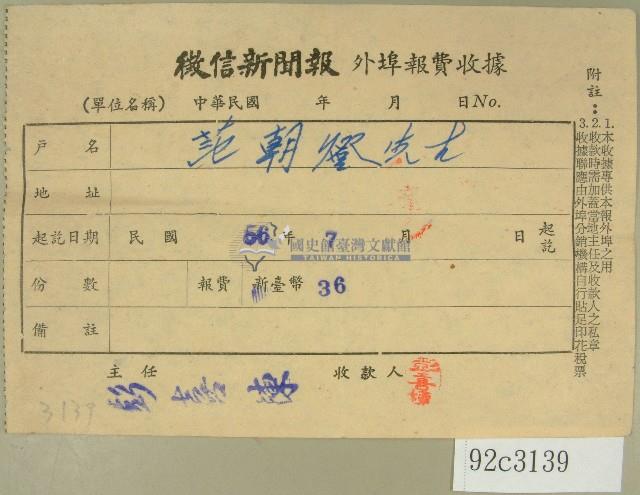 徵信新聞報 外埠報費收據
(單位名稱) 中華民國 年 月 日 No.
戶名 范朝燈先生
地址
起訖日期 民國 56年 7月 日 起訖
份數 報費 新臺幣 36
備註
主任 收款人
附註：
1.本收據專供本報外埠之用
2.收款時需加蓋當地主任及收款人之私章
3.收據聯應由外埠分銷機構自行貼足印花稅票
國史館臺灣文獻館
TAIWAN HISTORICA
3139
92c3139